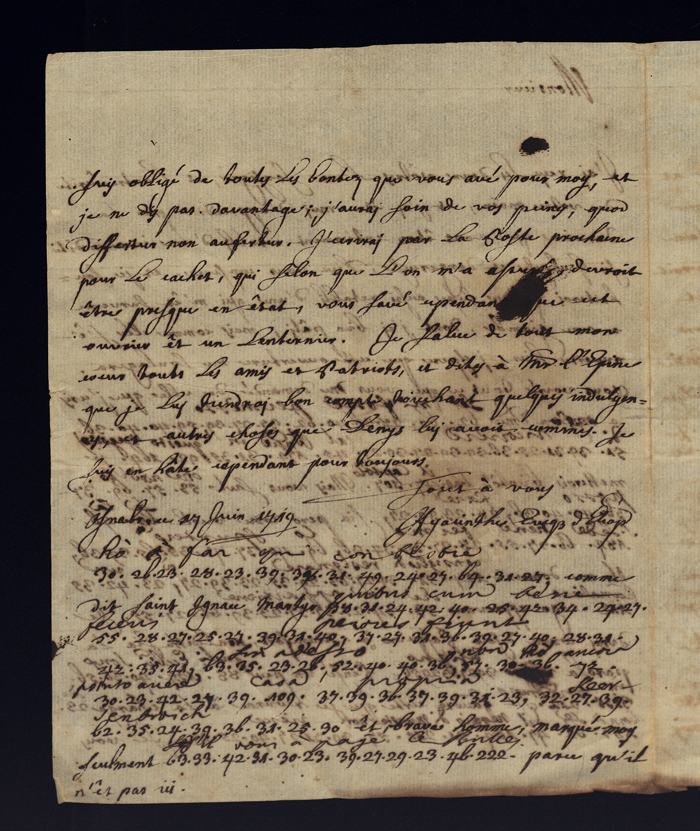 suis obligé de toutes les bontez que vous avé pour moy, et
je ne dis pas davantage; j'auraj soin de vos peines, quod
differtur non aufertur. J'ecriraj par la Poste prochaine
pour le cachet, qui selon que l'on m'a assuré devroit
être presque en état, vous savé cependant que cet
ouvrier êt un Lenternier. Je salue de tout mon
coeur touts les amis et Patriots, et dites à Mr l'Epine
que je luy tiendraj bon compte touchant quelques indulgen=
autres choses que Denys luy avoit commis. Je
suis en hâte cependant pour toujours.
Tout à vous
ce 17 Juin 1719 Hyacinthe
hò à far qui con
30. 26. 23. 28. 23. 39. 31. 49. 24. 27. 69. 31. 27. comme
quibus cum bene
dit Saint Ignace Martyr 58. 31. 24. 42. 40. 25. 42. 34. 29. 27.
feceris peiores fiunt
55. 28. 27. 25. 27. 39. 31. 40. 37. 27. 31. 36. 39. 27. 40. 28. 31.
adesso
42. 35. 41. 63. 35. 23. 26. 52. 40. 40. 36. 57. 30. 36. 72.
casa propria
30. 23. 42. 27. 39. 109. 37. 39. 36. 37. 39. 31. 23, 32. 27. 39.
62. 35. 24. 39. 36. 31. 25. 30 êt brave homme, marqué moy
vous a payé
seulment 63. 33. 42. 31. 30. 23. 39. 27. 29. 23. 46. 222. parce qu'il
n'êt pas ici.